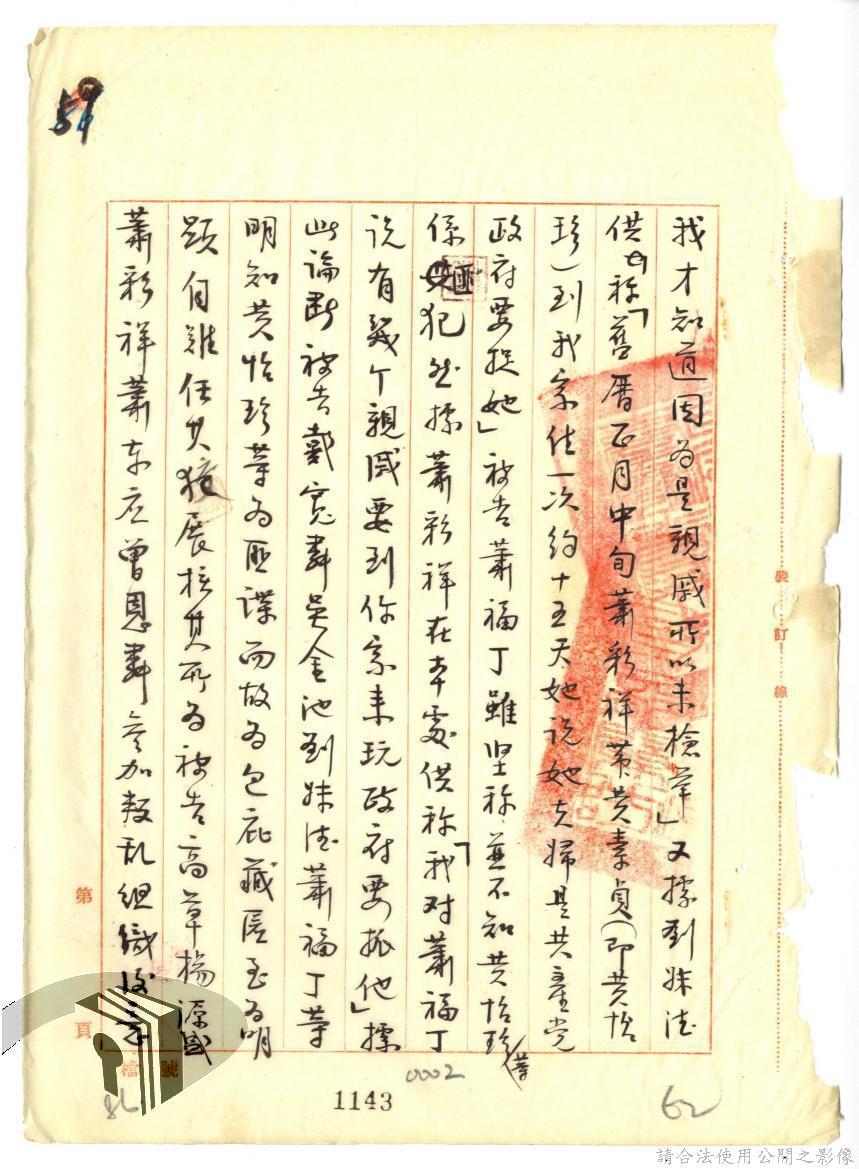 我才知道因為是親戚所以未檢舉」又據劉妹法
供称「舊曆正月中旬蕭彩祥帶黄素貞(即黄怡
珍)到我家住一次約十五天她説她夫婦是共産党
政府要捉她」被告蕭福丁雖坚称並不知黄怡珍等
係匪犯然據蕭彩祥在本處供称「我对蕭福丁
说有幾个親戚要到你家来玩政府要抓他」據
此論断被告戴寬霖吴金池刘妹法蕭福丁等
明知黄怡珍等為匪諜而故為包庇藏匿至為明
顕自难任其狡展核其所為被告高草楊源盛
蕭彩祥蕭东应曾恩霖参加叛乱组織
裝訂線
第 頁
檔號
59
56
86
0002
1143
62
請合法使用公開之影像